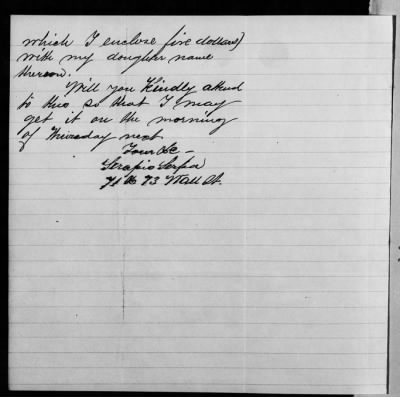 which I enclose five dollars)
with my doughter name
thereon.
Will you kindly attend
to this so that I may
get it on the morning
of Thursday next
Your &c -
Serapio Serpa
71 to 73 Wall St.